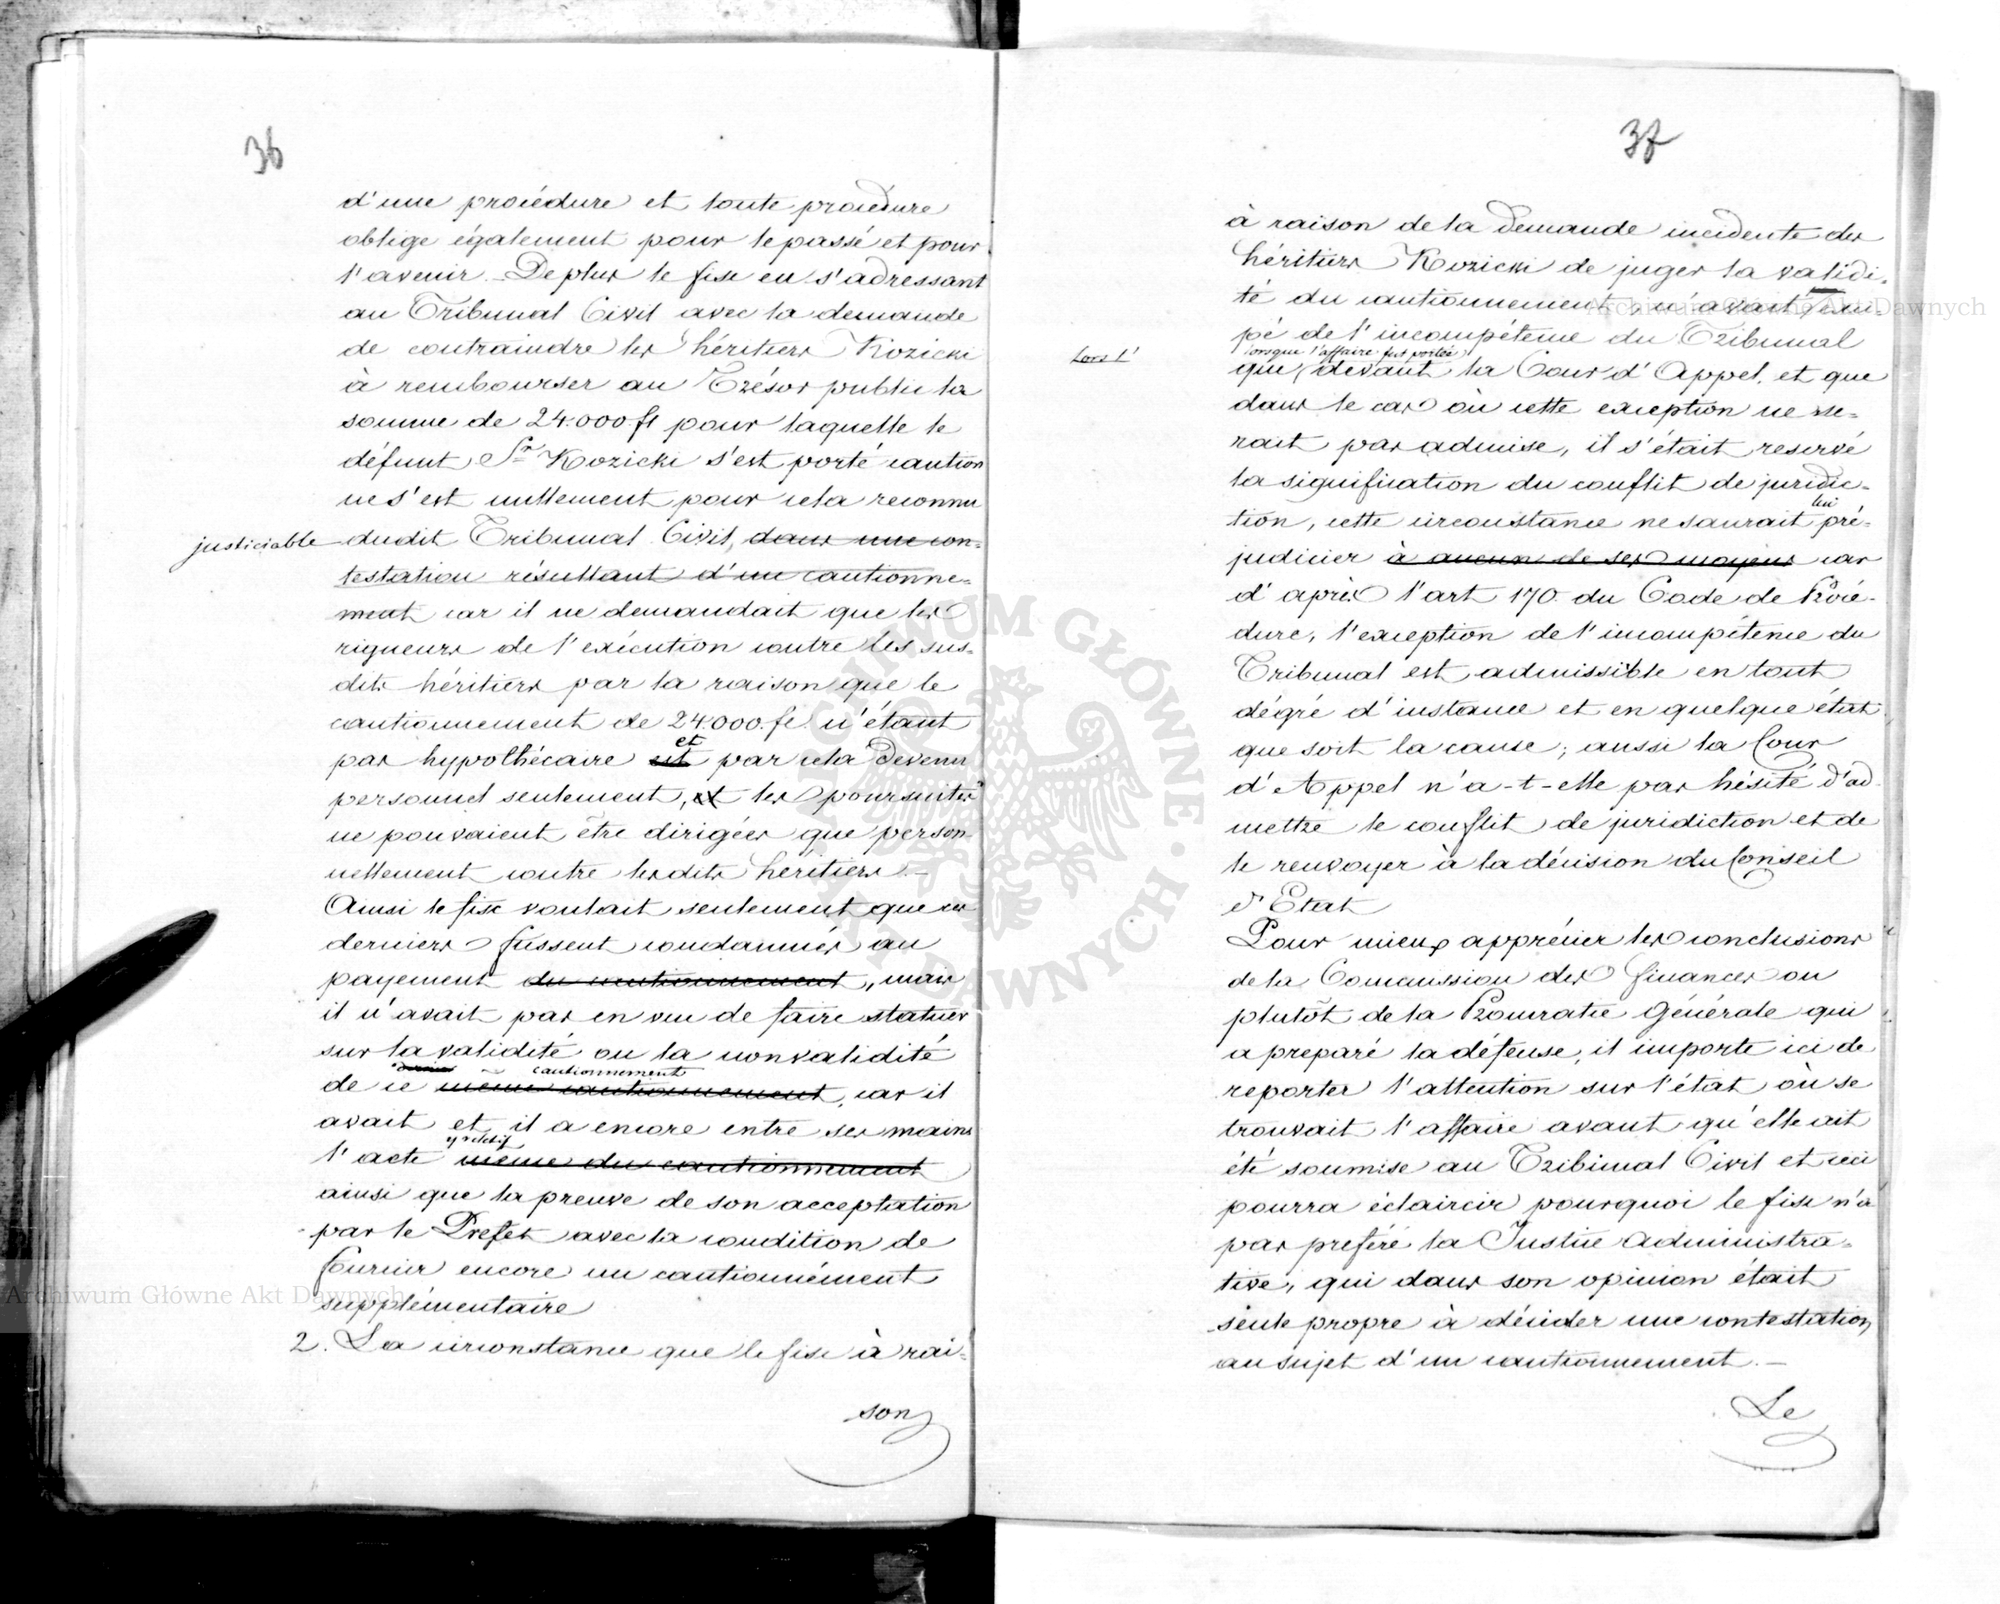 36
d'une procédure et toute procédure
oblige également pour le passé et pour
l'avenir. – De plus le fisc en s'adressant
au Tribunal Civil avec la demande
de contraindre les héritiers Kozicki
à rembourser au Trésor public la
somme de 24.000 fl pour laquelle le
défunt Sr Kozicki s'est porté caution
ne s'est nullement pour cela reconnu
justiciable dudit Tribunal Civil, dans une con-
testation résultant d'un cautionne-
ment car il ne demandait que les
rigueurs de l'exécution contre les sus-
dits héritiers par la raison que le
cautionnement de 24.000. fl. n'étant
et
pas hypothécaire est par cela devenu
personnel seulement, et les poursuites
ne pouvaient être dirigées que person-
nellement contre lesdits héritiers. –
Ainsi le fisc voulait seulement que ces
derniers fussent condamnés au
payement du cautionnement, mais
il n'avait pas en vue de faire statuer
sur la validité ou la non validité
cautionnement
de ce même cautionnement, car il
avait et il a encore entre ses mains
l'acte même du cautionnement
ainsi que la preuve de son acceptation
par le Prefet avec la condition de
fournir encore un cautionnément
supplémentaire
2. La circonstance que le fisc à rai-
son
37
à raison de la demande incidente des
héritiers Kozicki de juger la validi-
té du cautionnement, n'avait exci-
pé de l'incompétence du Tribunal
Lors l'
lorsque l'affaire fut portée
que devant la Cour d'Appel, et que
dans le cas où cette exception ne se-
rait pas admise, il s'était reservé
la signification du conflit de juridic-
lui
tion, cette circonstance ne saurait pré-
judicier à aucun de ses moyens car
d'après l'art 170. du Code de Procé-
dure, l'exception de l'incompétence du
Tribunal est admissible en tout
dégré d'instance et en quelque état
que soit la cause; aussi la Cour
d'Appel n'a-t-elle pas hésité d'ad-
mettre le conflit de juridiction et de
le renvoyer à la décision du Conseil
d'Etat
Pour mieux apprécier les conclusions
de la Commission des finances ou
plutôt de la Procuratie Générale qui
a preparé la défense, il importe ici de
reporter l'attention sur l'état où se
trouvait l'affaire avant qu'elle ait
été soumise au Tribunal Civil et ceci
pourra éclaircir pourquoi le fisc n'a
pas preféré la Justice administra-
tive, qui dans son opinion était
seule propre à décider une contestation
au sujet d'un cautionnement. –
Le
Archiwum Główne Akt Dawnych
Archiwum Główne Akt Dawnych
ARCHIWUM GŁÓWNE AKT DAWNYCH